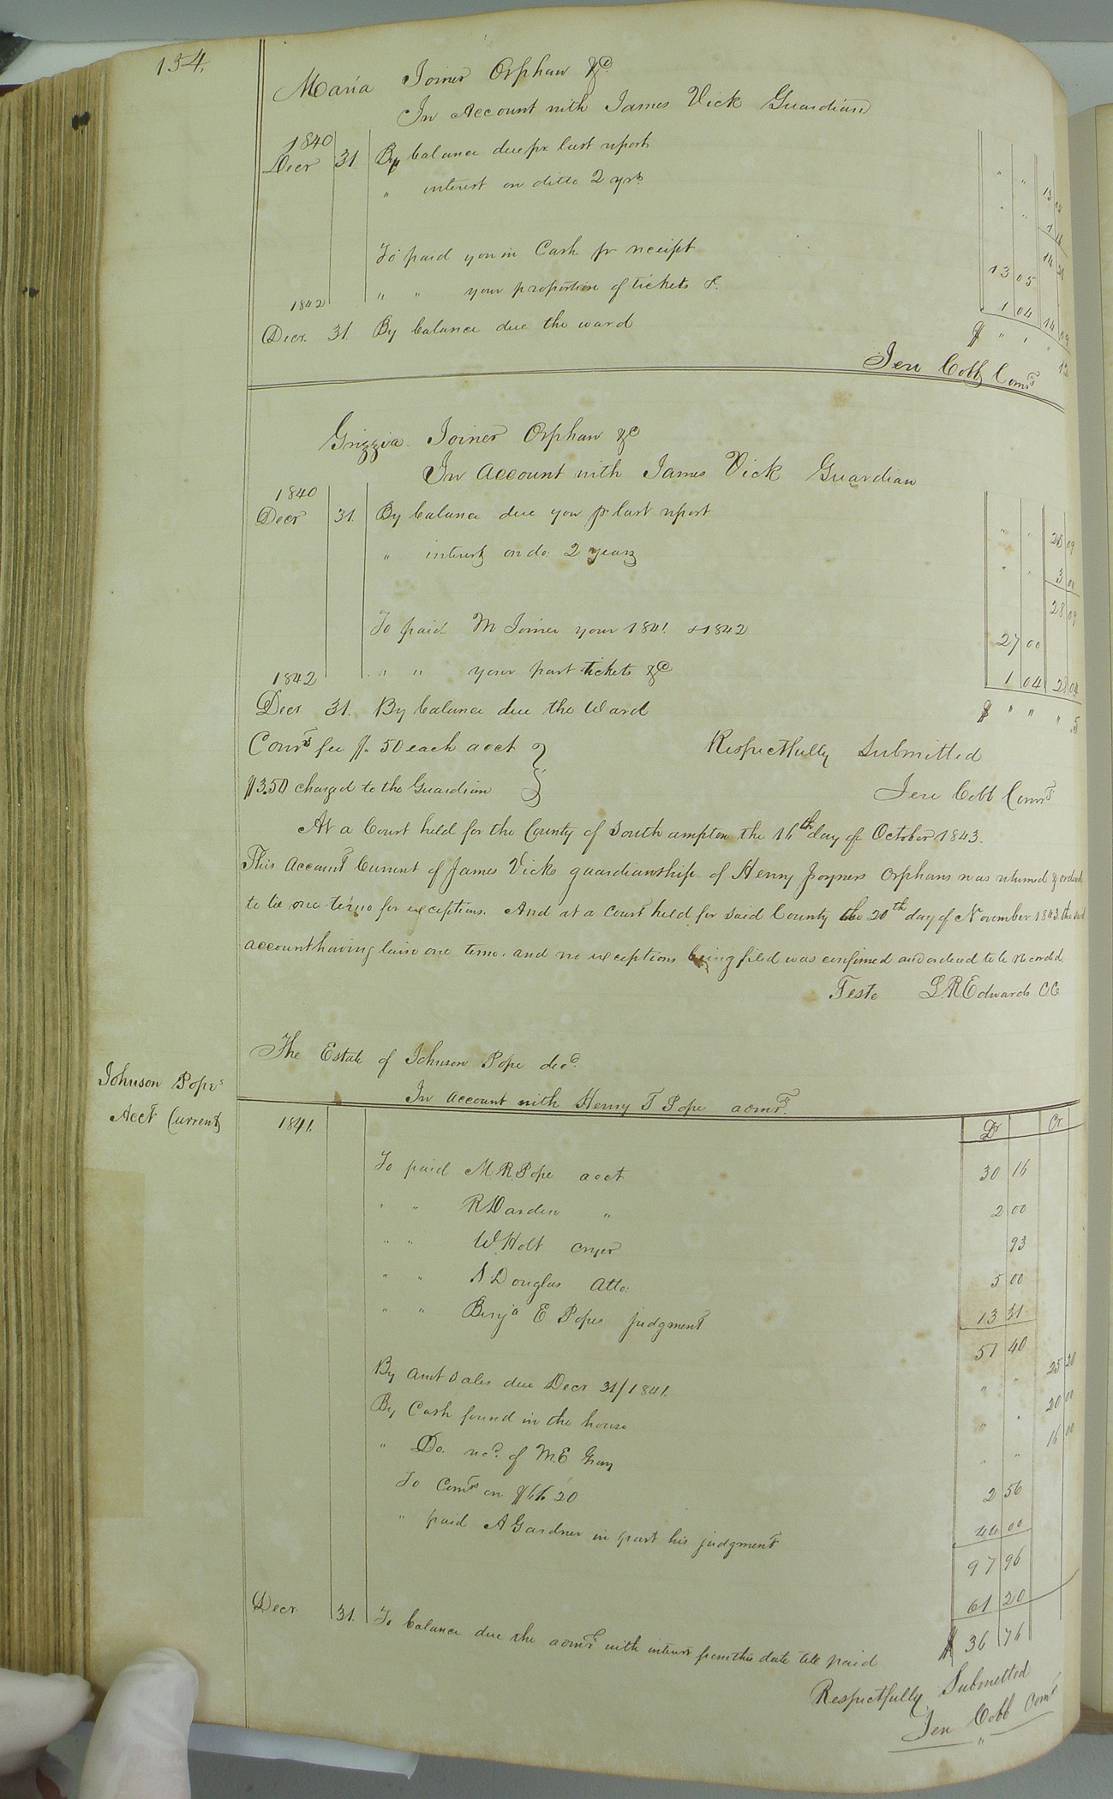 134.
Maria Joiner Orphan &c
In Account with James Vick Guardian
1840
Decr 31 By balance due pr last report " "
" interest on ditto 2 yrs " "
To paid you in Cash pr receipt 13 05
" " your proportion of tickets &. 1 04 14 09
1842
Decr. 31. By balance due the ward $ " " "
Jere Cobb Comr
Grizzia Joiner Orphan &c
In Account with James Vick Guardian
1840
Decr 31. By balance due you pr last report " "
" interest on do 2 years " " 3 00
28 09
To paid M Joiner your 1841 & 1842 27 00
" " your part tickets &c 1 04 28 04
1842
Decr 31. By balance due the Ward $ " " " 5
Comrs fee $. 50 each acct } Respectfully Submitted
$3.50 charged to the Guardian Jere Cobb Comr
At a Court held for the County of Southampton the 16th day of October 1843.
This Account Current of James Vicks guardianship of Henry Joyners Orphans was returned & ordered
to lie one term for exceptions. And at a Court held for said County the 20th day of November 1843 the said
account having lain one term. and no exceptions being filed was confirmed and ordered to be recorded
Teste L R Edwards CC
The Estate of Johnson Pope decd.
Johnson Popes
Acct Current
In account with Henry T Pope admr.
1841. Dr Cr
To paid M R Pope acct 30 16
" " R Darden " 2 00
" " W. Holt cryer 93
" " A Douglas Atto. 5 00
" " Benja E Popes judgment 13 31
51 40
By amt sales due Decr 31/1841. " " 25 20
By Cash found in the house " " 20 00
" Do. recd. of M E Gray " " 16 00
To Comr on $61 20 2 56
" paid A Gardner in part his judgment 44 00
97 96
61 20
Decr 31. To balance due the admr with interest from this date till paid $ 36 76
Respectfully Submitted
Jere Cobb Comr